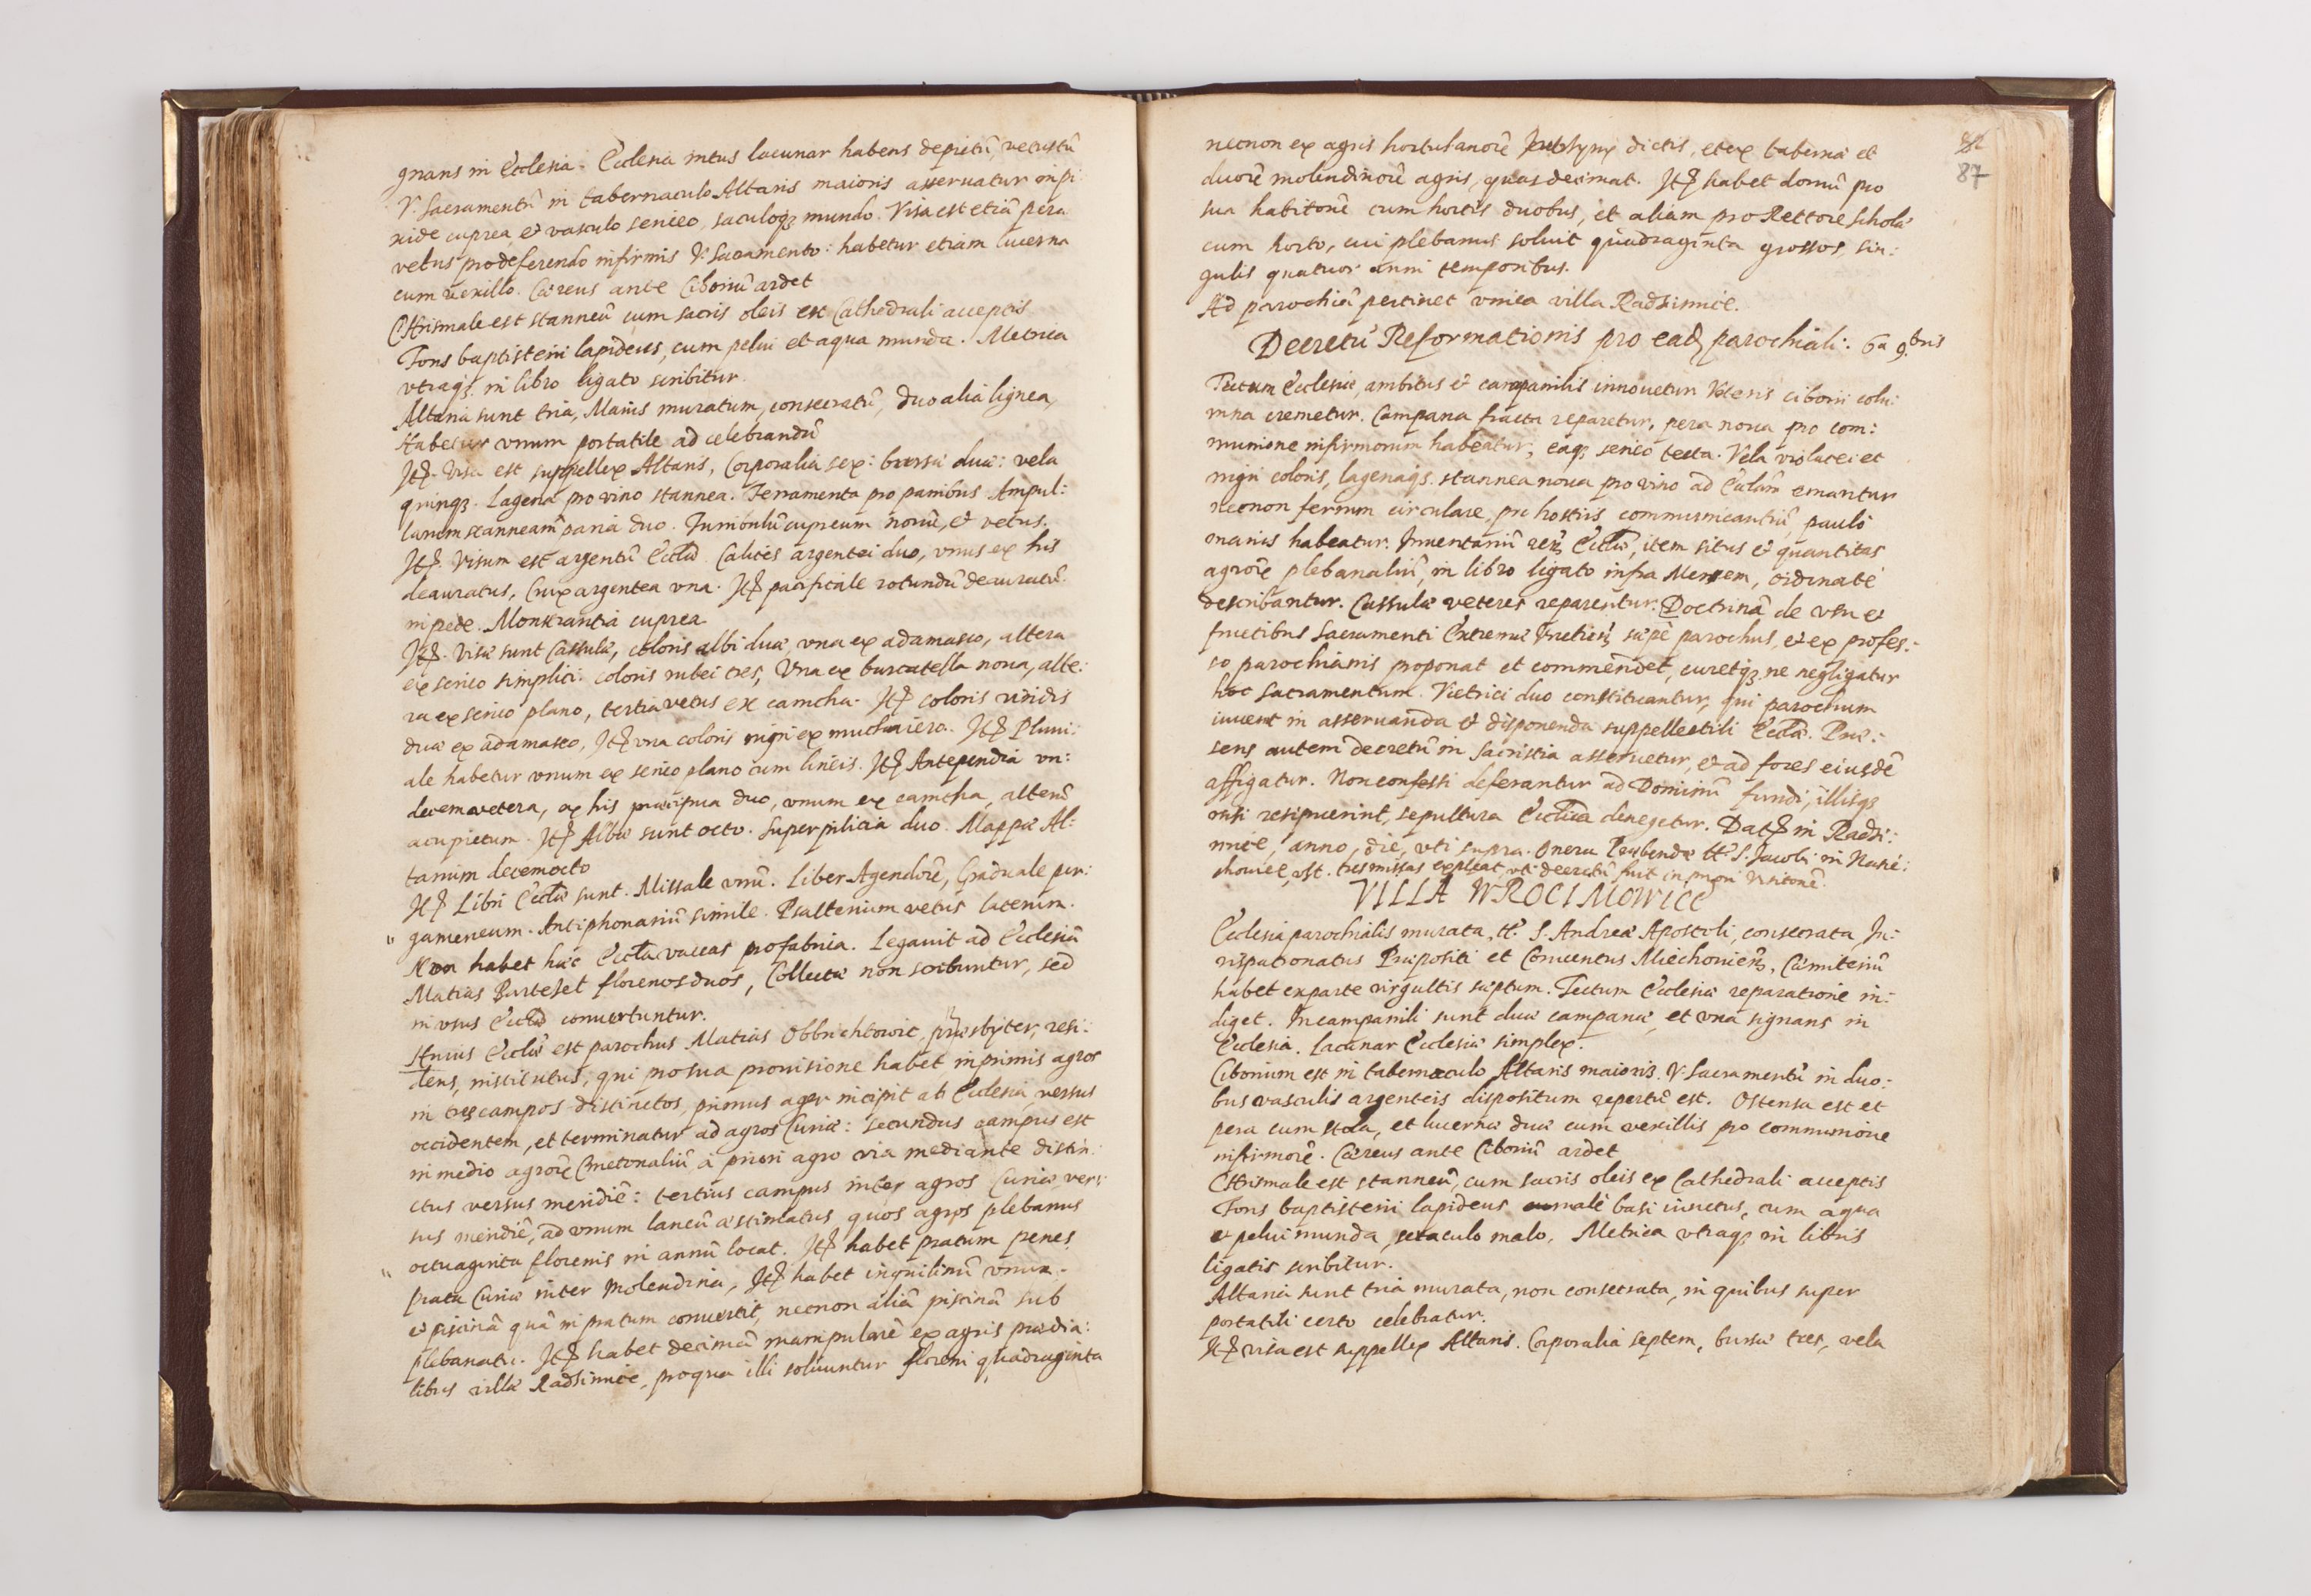 gnans in Ecclesia. Ecclesia intus lacunar habens depictũ, vetustũ
V. Sacramentũ in tabernaculo Altaris maioris asseruatur in pi
xide cuprea, et vasculo sericeo, saculoqȝ mundo. Visa est etiã pera
vetus pro deferendo infirmis V. Sacramento: habetur etiam lucerna
cum vexillo. Cæreus ante Ciboriũ ardet
Chrismale est stanneũ cum sacris oleis ex Cathedrali acceptis
Fons baptisterii lapideus, cum pelui et aqua munda. Metrica
vtraqȝ in libro ligato scribitur.
Altaria sunt tria, Maius muratum, consecratũ, duo alia lignea,
Habetur vnum portatile ad celebrandũ
Itẽ. Visa est suppellex Altaris, Corporalia sex: bursæ duæ: vela
quinqȝ. Lagena pro vino stannea. Ferramenta pro panibus. Ampul:
larum stannearũ paria duo. Turribulũ cupreum nouũ, et vetus.
Itẽ. Visum est argentũ Eccłæ. Calices argentei duo, vnus ex his
deauratus, Crux argentea vna. Itẽ pacificale rotundũ deauratũ
in pede. Monstrantia cuprea
Itẽ. Visæ sunt Casulæ, coloris albi duæ, vna ex adamasco, altera
ex serico simplici: coloris rubei tres, Vna ex burcatella noua, alte:
ra ex serico plano, tertia vetus ex camcha. Itẽ coloris viridis
duæ ex adamasco, Itẽ vna coloris nigri ex muchaiero. Itẽ Pluui:
ale habetur vnum ex serico plano cum lineis. Itẽ Antependia vn:
decem vetera, ex his præcipua duo, vnum ex camcha, alterũ
acupictum. Itẽ Albæ sunt octo. Superpilicia duo. Mappæ Al:
tarium decemocto
Itẽ Libri Eccłæ sunt. Missale vnũ. Liber Agendorũ, Graduale per:
gameneum. Antiphonariũ simile. Psalterium vetus lacerum.
Non habet hæc Eccła vaccas pro fabrica. Legauit ad Ecclesiã
Matias florenos duos, Collectæ non scribuntur, sed
in vsus Eccłæ conuertuntur.
Huius Eccłæ est parochus Matias præsbyter, resi:
dens, institutus, qui pro sua prouisione habet inprimis agros
in tres campos distinctos, primus ager incipit ab Ecclesia versus
occidentem, et terminatur ad agros Curiæ: secundus campus est
in medio agrorũ Cmetonaliũ à priori agro via mediante distin:
ctus versus meridiẽ: tertius campus inter agros Curiæ ver:
sus meridiẽ, ad vnum laneũ æstimatus, quos agros plebanus
octuaginta florenis in annũ locat. Itẽ habet pratum penes
prata Curiæ inter molendina, Itẽ habet inquilinũ vnum
et piscinã quã in pratum conuertit, necnon aliã piscinã sub
plebanatu. Itẽ habet decimã manipularẽ ex agris prædia:
libus villæ Radsimice, pro qua illi soluuntur floreni quadraginta
87
necnon ex agris hortulanorũ dictis, et ex taberna et
duorũ molendinorũ agris, quas decimat. Itẽ habet domũ pro
sua habitonẽ cum hortis duobus, et aliam pro Rectore scholæ
cum horto, cui plebanus soluit quadraginta grossos, sin:
gulis quatuor anni temporibus.
Ad parochiã pertinet vnica villa Radzimice.
Decretũ Reformationis pro eadẽ parochiali. 6a 9.bris
Tectum Ecclesiæ, ambitus et campanilis innouetur. Veteris ciborii colu:
mna cremetur. Campana fracta reparetur, pera noua pro com:
munione infirmorum habeatur, eaqȝ serico tecta. Vela violacei et
nigri coloris, lagenaqȝ stannea noua pro vino ad Eccłam emantur
necnon ferrum circulare, pro hostiis communicantiũ, paulò
maius habeatur. Inuentariũ rerũ Eccłæ, item situs et quantitas
agrorũ plebanaliũ, in libro ligato infra Mensem, ordinatè
describantur. Casulæ veteres reparentur. Doctrinã de vsu et
fructibus Sacramenti Extremæ Vnctionis, sæpè parochus, et ex profes:
so parochianis proponat et commendet, curetqȝ ne negligatur
hoc Sacramentum. Vitrici duo constituantur, qui parochum
iuuent in asseruanda et disponenda suppellectili Eccłæ. Præ:
sens autem decretũ in sacristia asseruetur, et ad fores eiusdẽ
affigatur. Non confessi deferantur ad Dominũ fundi, illisqȝ
nisi resipuerint, sepultura Eccłica denegetur. Datẽ in Radzi:
mice, anno, die, vti supra. Onera Præbendæ tt. S. Jacobi in
vst. tres missas expleat, vti decretũ fuit in priori Visitonẽ.
VILLA WROCIMOWICE
Ecclesia parochialis murata, tt. S. Andreæ Apostoli, consecrata, Iu:
rispatronatus Præpositi et Conuentus Miechouieñ. Cæmiteriũ
habet ex parte virgultis sæptum. Tectum Ecclesiæ reparatione in:
diget. In campanili sunt duæ campanæ, et vna signans in
Ecclesia. Lacunar Ecclesiæ simplex.
Ciborium est in tabernaculo Altaris maioris. V. Sacramentũ in duo:
bus vasculis argenteis dispositum repertũ est. Ostensa est et
pera cum stola, et lucernæ duæ cum vexillis pro communione
infirmorũ. Cæreus ante Ciboriũ ardet
Chrismale est stanneũ, cum sacris oleis ex Cathedrali acceptis
Fons baptisterii lapideus malè basi iunctus, cum aqua
et pelui munda, malo. Metrica vtraqȝ in libris
ligatis scribitur.
Altaria sunt tria murata, non consecrata, in quibus super
portatili certo celebratur.
Itẽ visa est suppellex Altaris. Corporalia septem, bursæ tres, vela